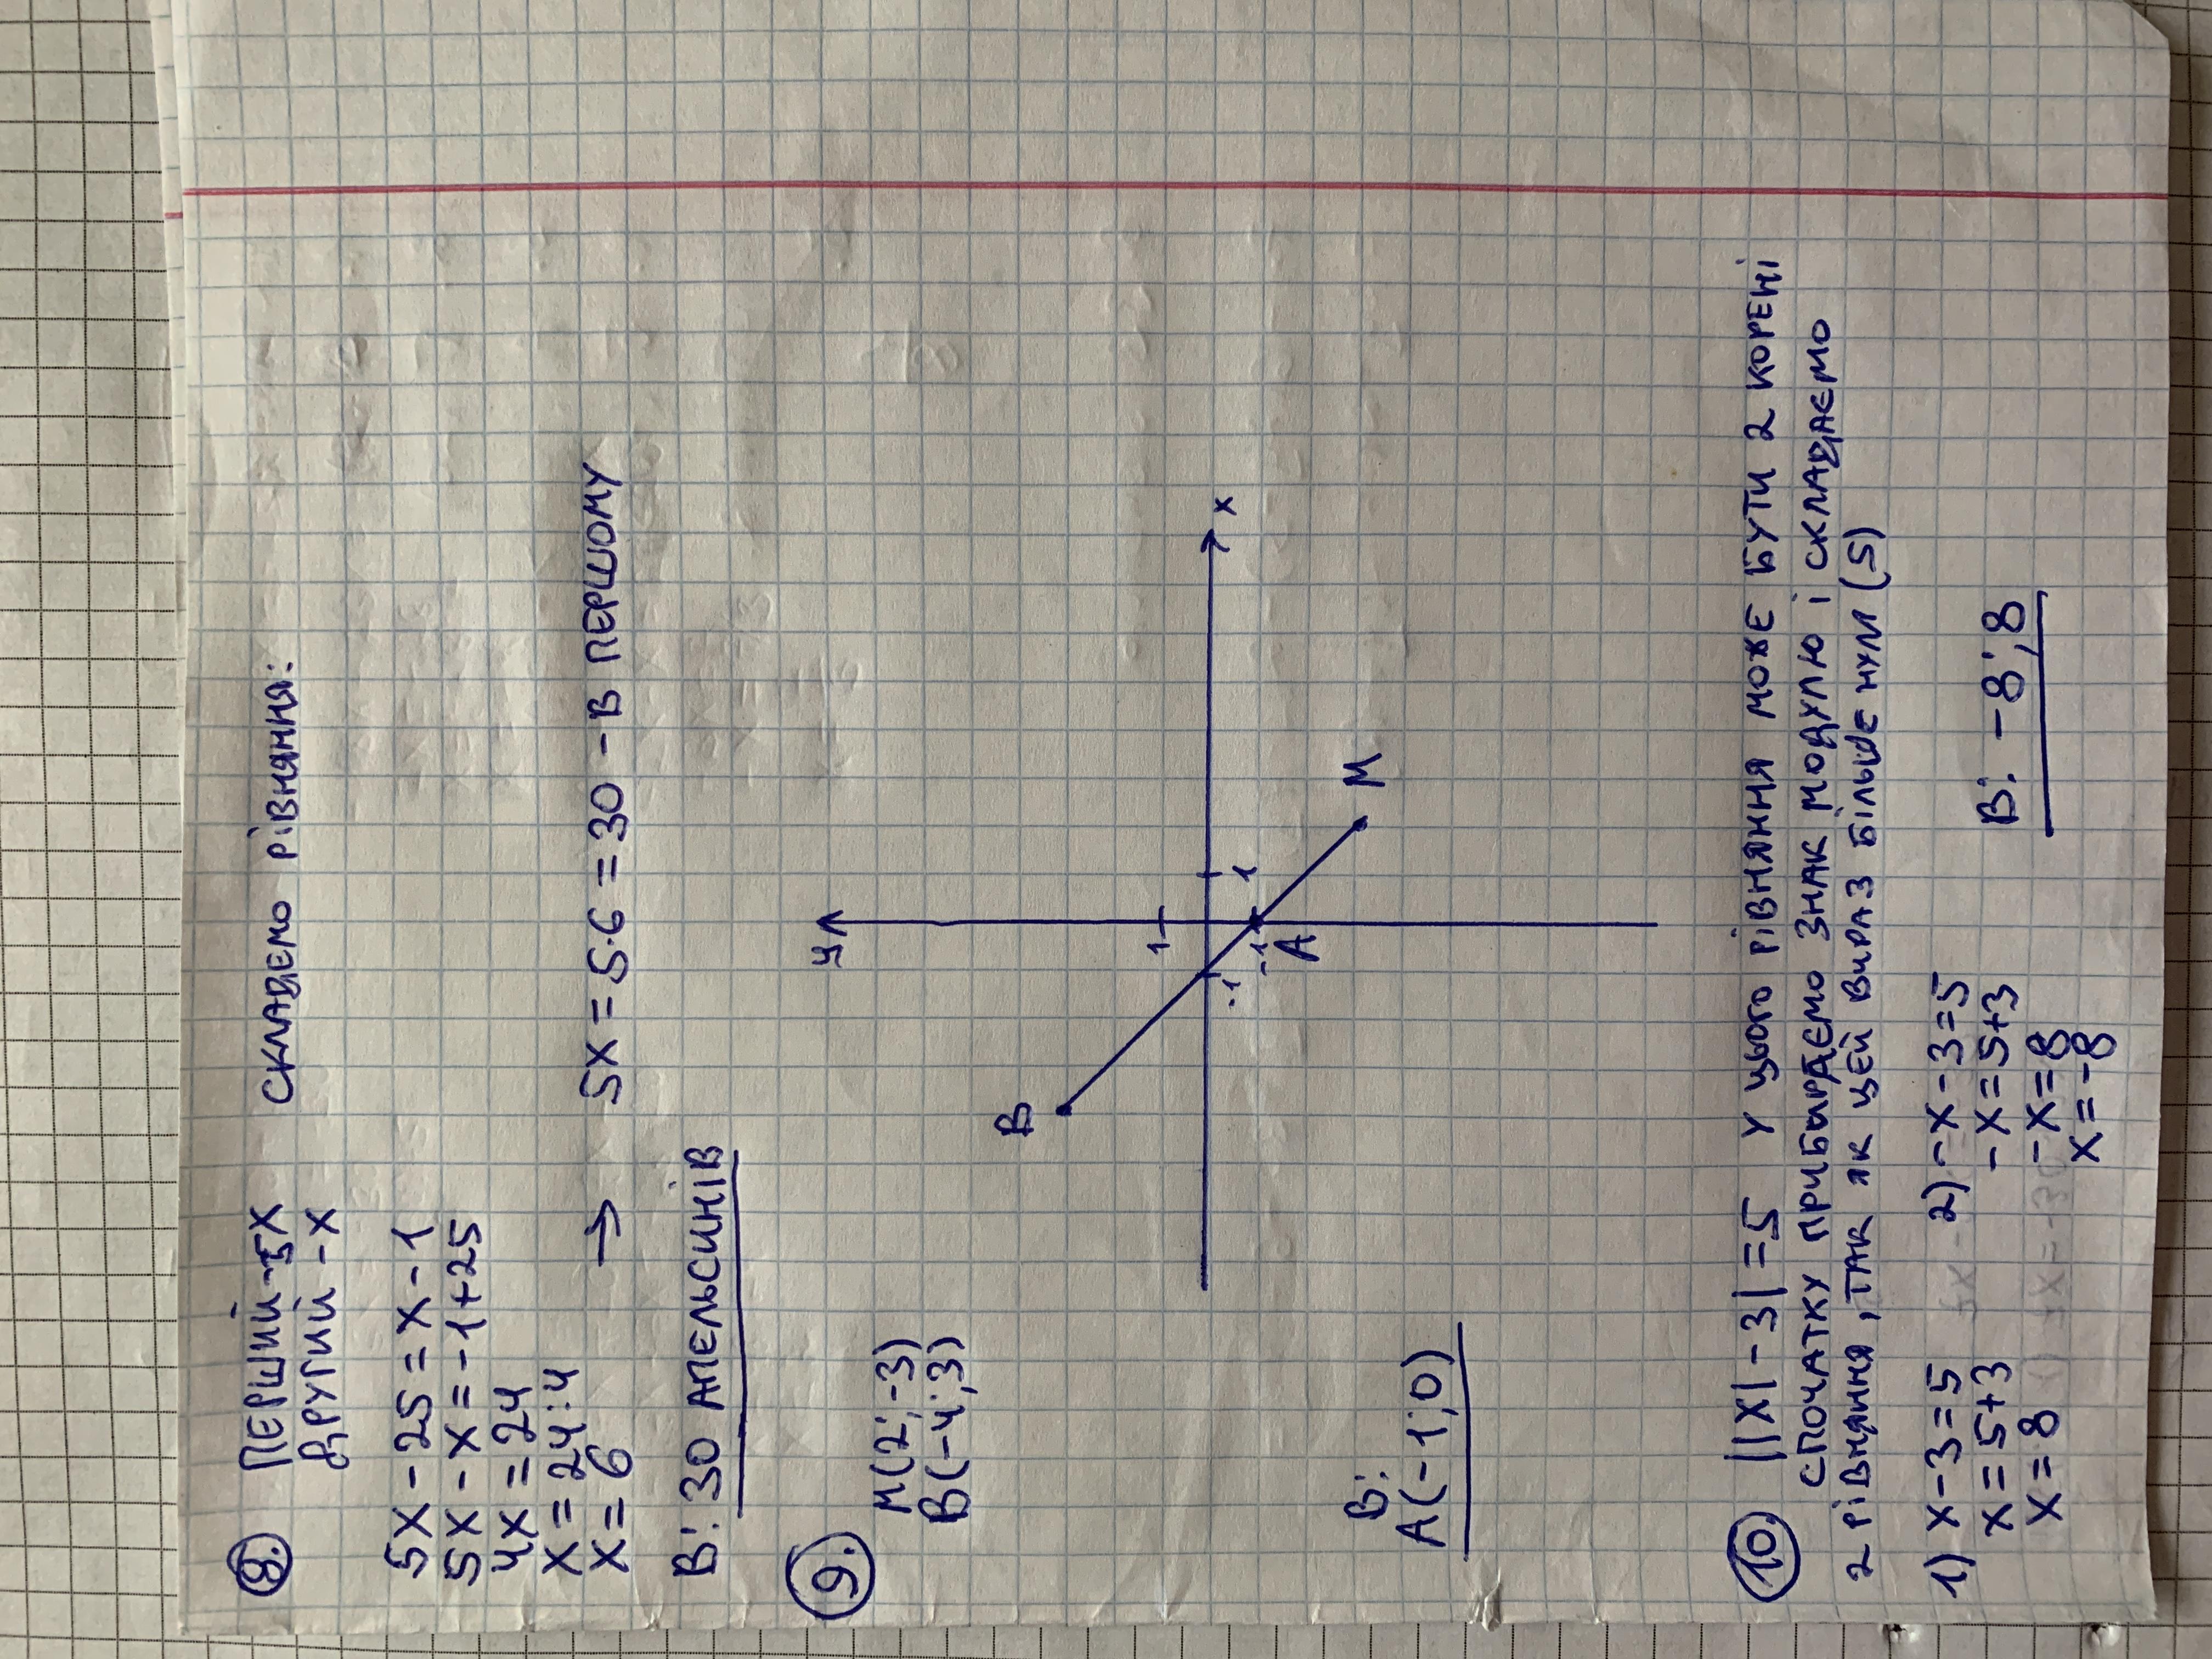 8. Перший - 5х Складемо рівняння:
Другий - х
5х - 25 = х - 1
5х - х = -1 + 25
4х = 24
х = 24 : 4
х = 6 → 5х = 5·6 = 30 - в першому
В: 30 апельсинів
9.
М(2; -3)
В(-4; 3)
у
1
В
х
-1
1
-1
А
М
В:
А(-1; 0)
10. ||х| - 3| = 5 У цього рівняння може бути 2 корені
спочатку прибираємо знак модулю і складаємо
2 рівняння, так як цей вираз більше нуля (5)
1) х - 3 = 5
х = 5 + 3
х = 8
2) -х - 3 = 5
-х = 5 + 3
-х = 8
х = -8
В: -8; 8